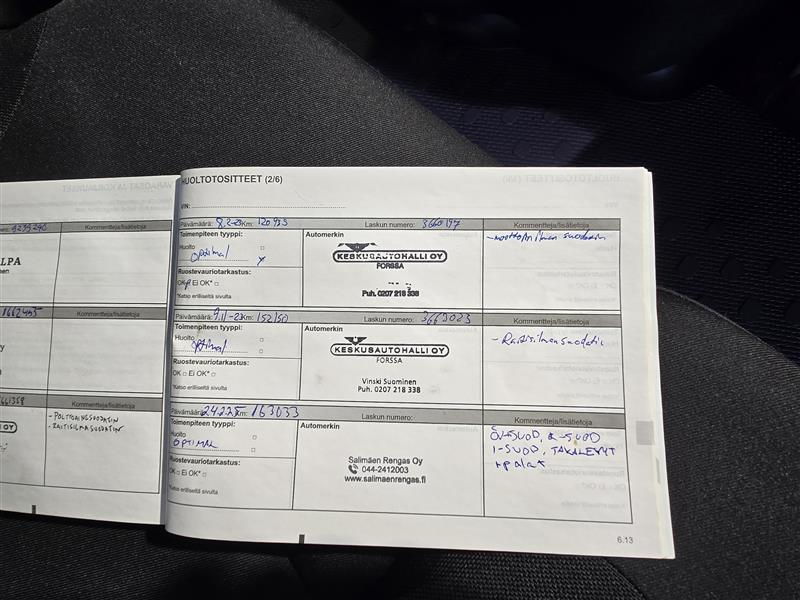 4239240
Kommentteja/lisätietoja
LPA
1662405
Kommentteja/lisätietoja
Kommentteja/lisätietoja
- POLTTOAINESUODATIN
- RAITISILMASUODATIN
OY
HUOLTOTOSITTEET (2/6)
VIN:
Päivämäärä: 8,2-23 Km: 120 985 Laskun numero: 3660197 Kommentteja/lisätietoja
Toimenpiteen tyyppi: Automerkin
Huolto □
optimal x
Ruostevauriotarkastus:
OK □ Ei OK* □
*Katso erilliseltä sivulta
KESKUSAUTOHALLI OY
FORSSA
Puh. 0207 218 338
- moottorin ilman suodatin
Päivämäärä: 9,11-23 Km: 152150 Laskun numero: 3663023 Kommentteja/lisätietoja
Toimenpiteen tyyppi: Automerkin
Huolto □
optimal □
Ruostevauriotarkastus:
OK □ Ei OK* □
*Katso erilliseltä sivulta
KESKUSAUTOHALLI OY
FORSSA
Vinski Suominen
Puh. 0207 218 338
- Raitisilmansuodatin
Päivämäärä: 24225 Km: 163033 Laskun numero: Kommentteja/lisätietoja
Toimenpiteen tyyppi: Automerkin
Huolto □
OPTIMAL □
Ruostevauriotarkastus:
OK □ Ei OK* □
*Katso erilliseltä sivulta
Salimäen Rengas Oy
044-2412003
www.salimaenrengas.fi
ÖV-SUOD, R-SUOD
I-SUOD, TAKALEVYT
+palat
6.13